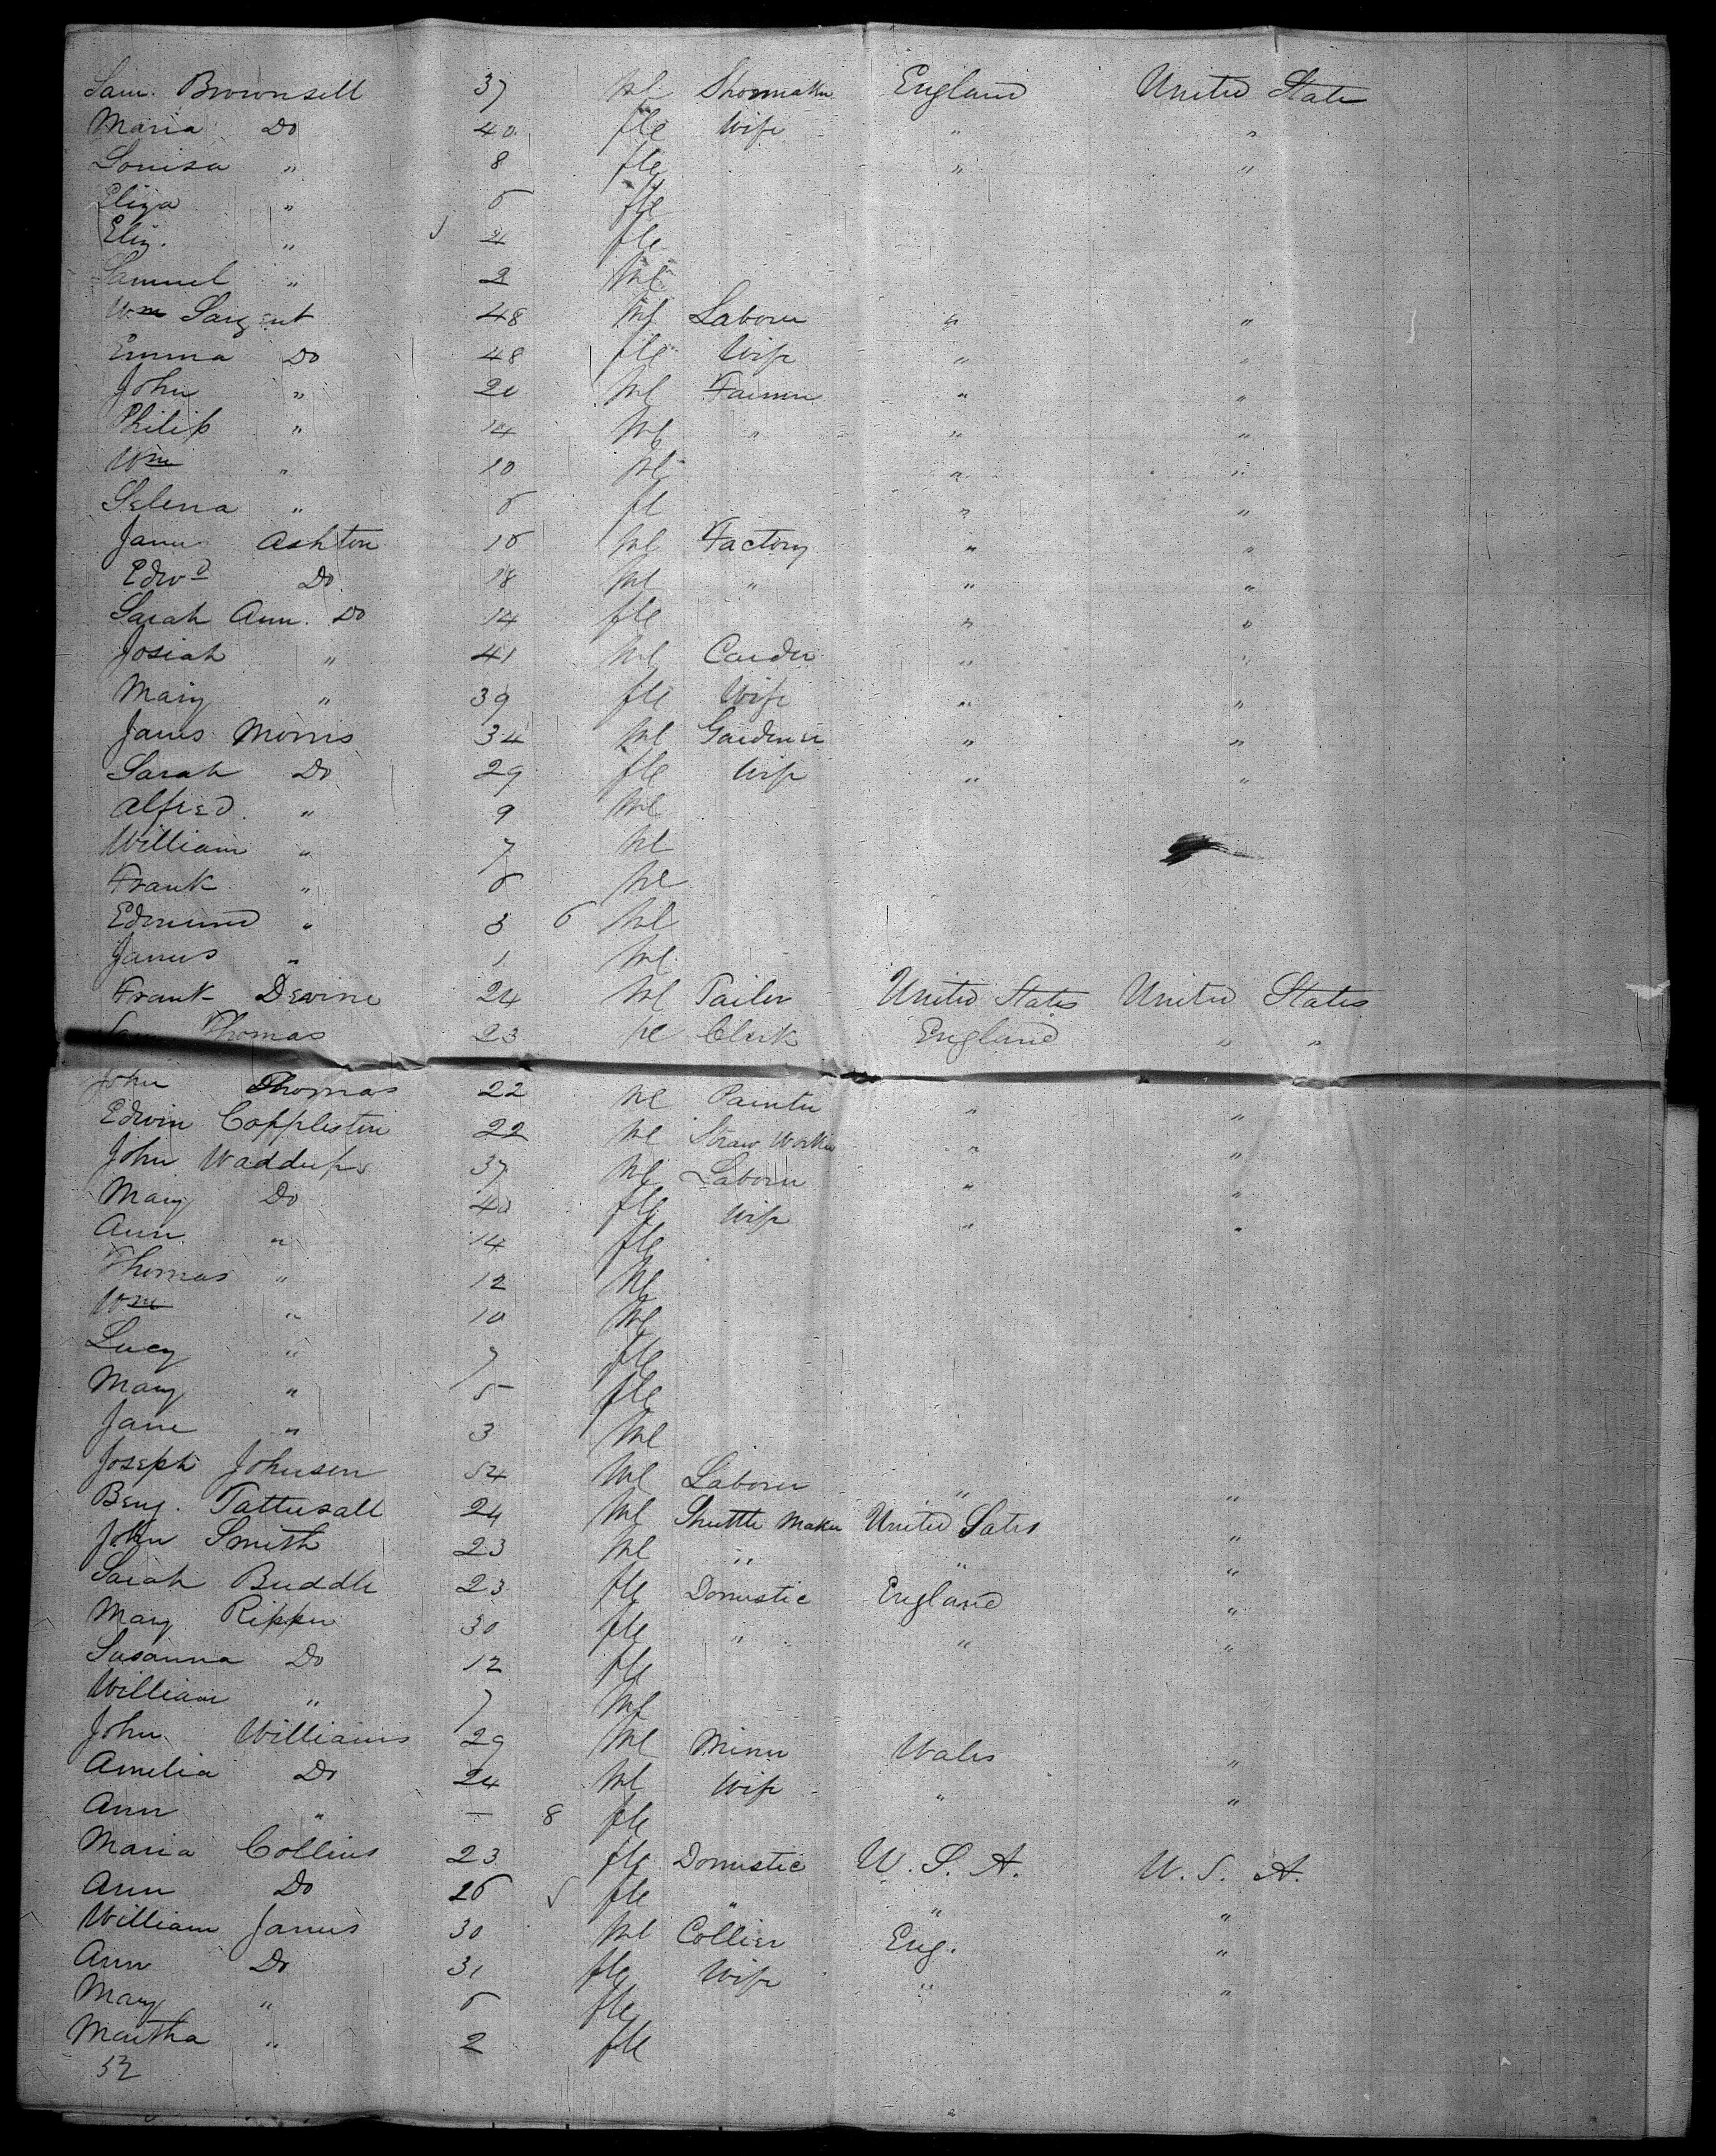 Sam. Brownsell 37 Ml Shoemaker England United State
Maria Do 40 fle Wife " "
Louisa " 8 fle " "
Eliza " 6 fle
Eliz. " 4 fle
Samuel " 2 Ml
Wm Sargent 48 Ml Laborer " "
Emma Do 48 fle Wife " "
John " 20 Ml Farmer " "
Philip " 14 Ml " " "
Wm " 10 Ml " "
Selena " 6 fl " "
James Ashton 16 Ml Factory " "
Edwd Do 18 Ml " " "
Sarah Ann. Do 14 fle " "
Josiah " 41 Ml Carder " "
Mary " 39 fle Wife " "
James Morris 34 Ml Gardener " "
Sarah Do 29 fle Wife " "
Alfred " 9 Ml
William " 7 Ml
Frank " 6 Ml
Edmund " 3 6 Ml
James " 1 Ml
Frank Devine 24 Ml Tailor United States United States
Thomas 23 Ml Clerk England " "
John Thomas 22 Ml Painter " "
Edwin Coppleston 22 Ml Straw Worker " "
John Waddups 37 Ml Laborer " "
Mary Do 40 fle Wife " "
Ann " 14 fle
Thomas " 12 Ml
Wm " 10 Ml
Lucy " 7 fle
Mary " 5 fle
Jane " 3 Ml
Joseph Johnson 54 Ml Laborer " "
Benj. Tattersall 24 Ml Shuttle Maker United Sates "
John Smith 23 Ml " " "
Sarah Buddle 23 fle Domestic England "
Mary Ripper 30 fle " " "
Susanna Do 12 fle
William " 7 Ml
John Williams 29 Ml Miner Wales "
Amelia Do 24 Ml Wife " "
Ann " — 8 fle
Maria Collins 23 fle Domestic U. S. A. U. S. A.
Ann Do 26 fle " " "
William James 30 Ml Collier Eng. "
Ann Do 31 fle Wife " "
Mary " 6 fle
Martha " 2 fle
52